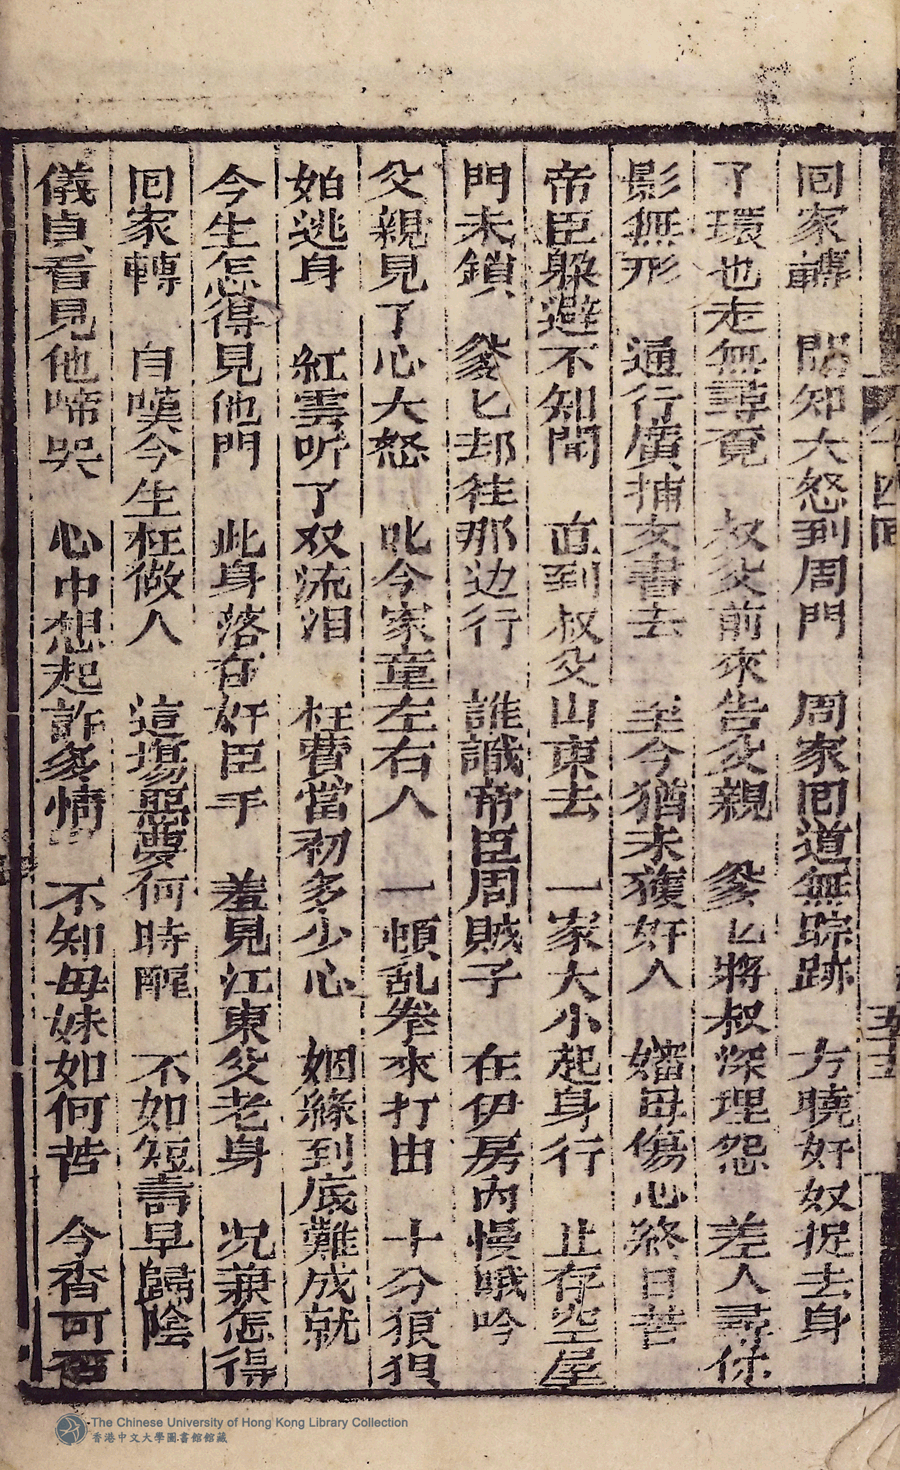 回家轉　閗知大怒到周門　周家囘道無踪跡　方曉奸奴捉去身
了環也走無尋覓　叔父前來告父親　爹匕將叔深埋怨　差人尋你
影無形　通行廣捕文書去　至今猶未獲奸人　嬸母傷心終日苦
帝臣躱避不知聞　直到叔父山東去　一家大小起身行　止存空屋
門未鎖　爹匕却往那边行　誰識帝臣周賊子　在伊房內慢哦吟
父親見了心大怒　叱令家童左右人　一頓乱拳來打由　十分狼狽
始逃身　紅雲听了双流泪　枉費當初多少心　姻緣到底難成就
今生怎得見他門　此身落在奸臣手　羞見江東父老身　况兼怎得
囘家轉　自嘆今生枉做人　這塲惡夢何時醒　不如短壽早歸陰
儀貞看見他啼哭　心中想起許多情　不知母妹如何苦　今番可
十四回
五十五
The Chinese University of Hong Kong Library Collection
香港中文大學圖書館館藏